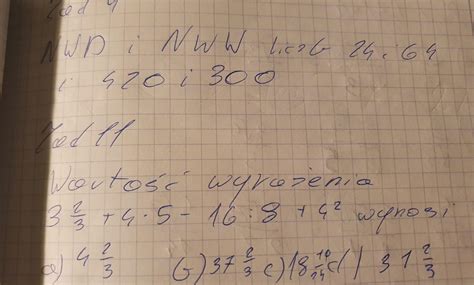 Zad 4
NWD i NWW liczb 24 i 64
i 420 i 300
Zad 11
Wartość wyrażenia
3 2/3 + 4 · 5 - 16 : 8 + 4² wynosi
a) 4 2/3 b) 37 2/3 c) 18 10/24 d) 31 2/3